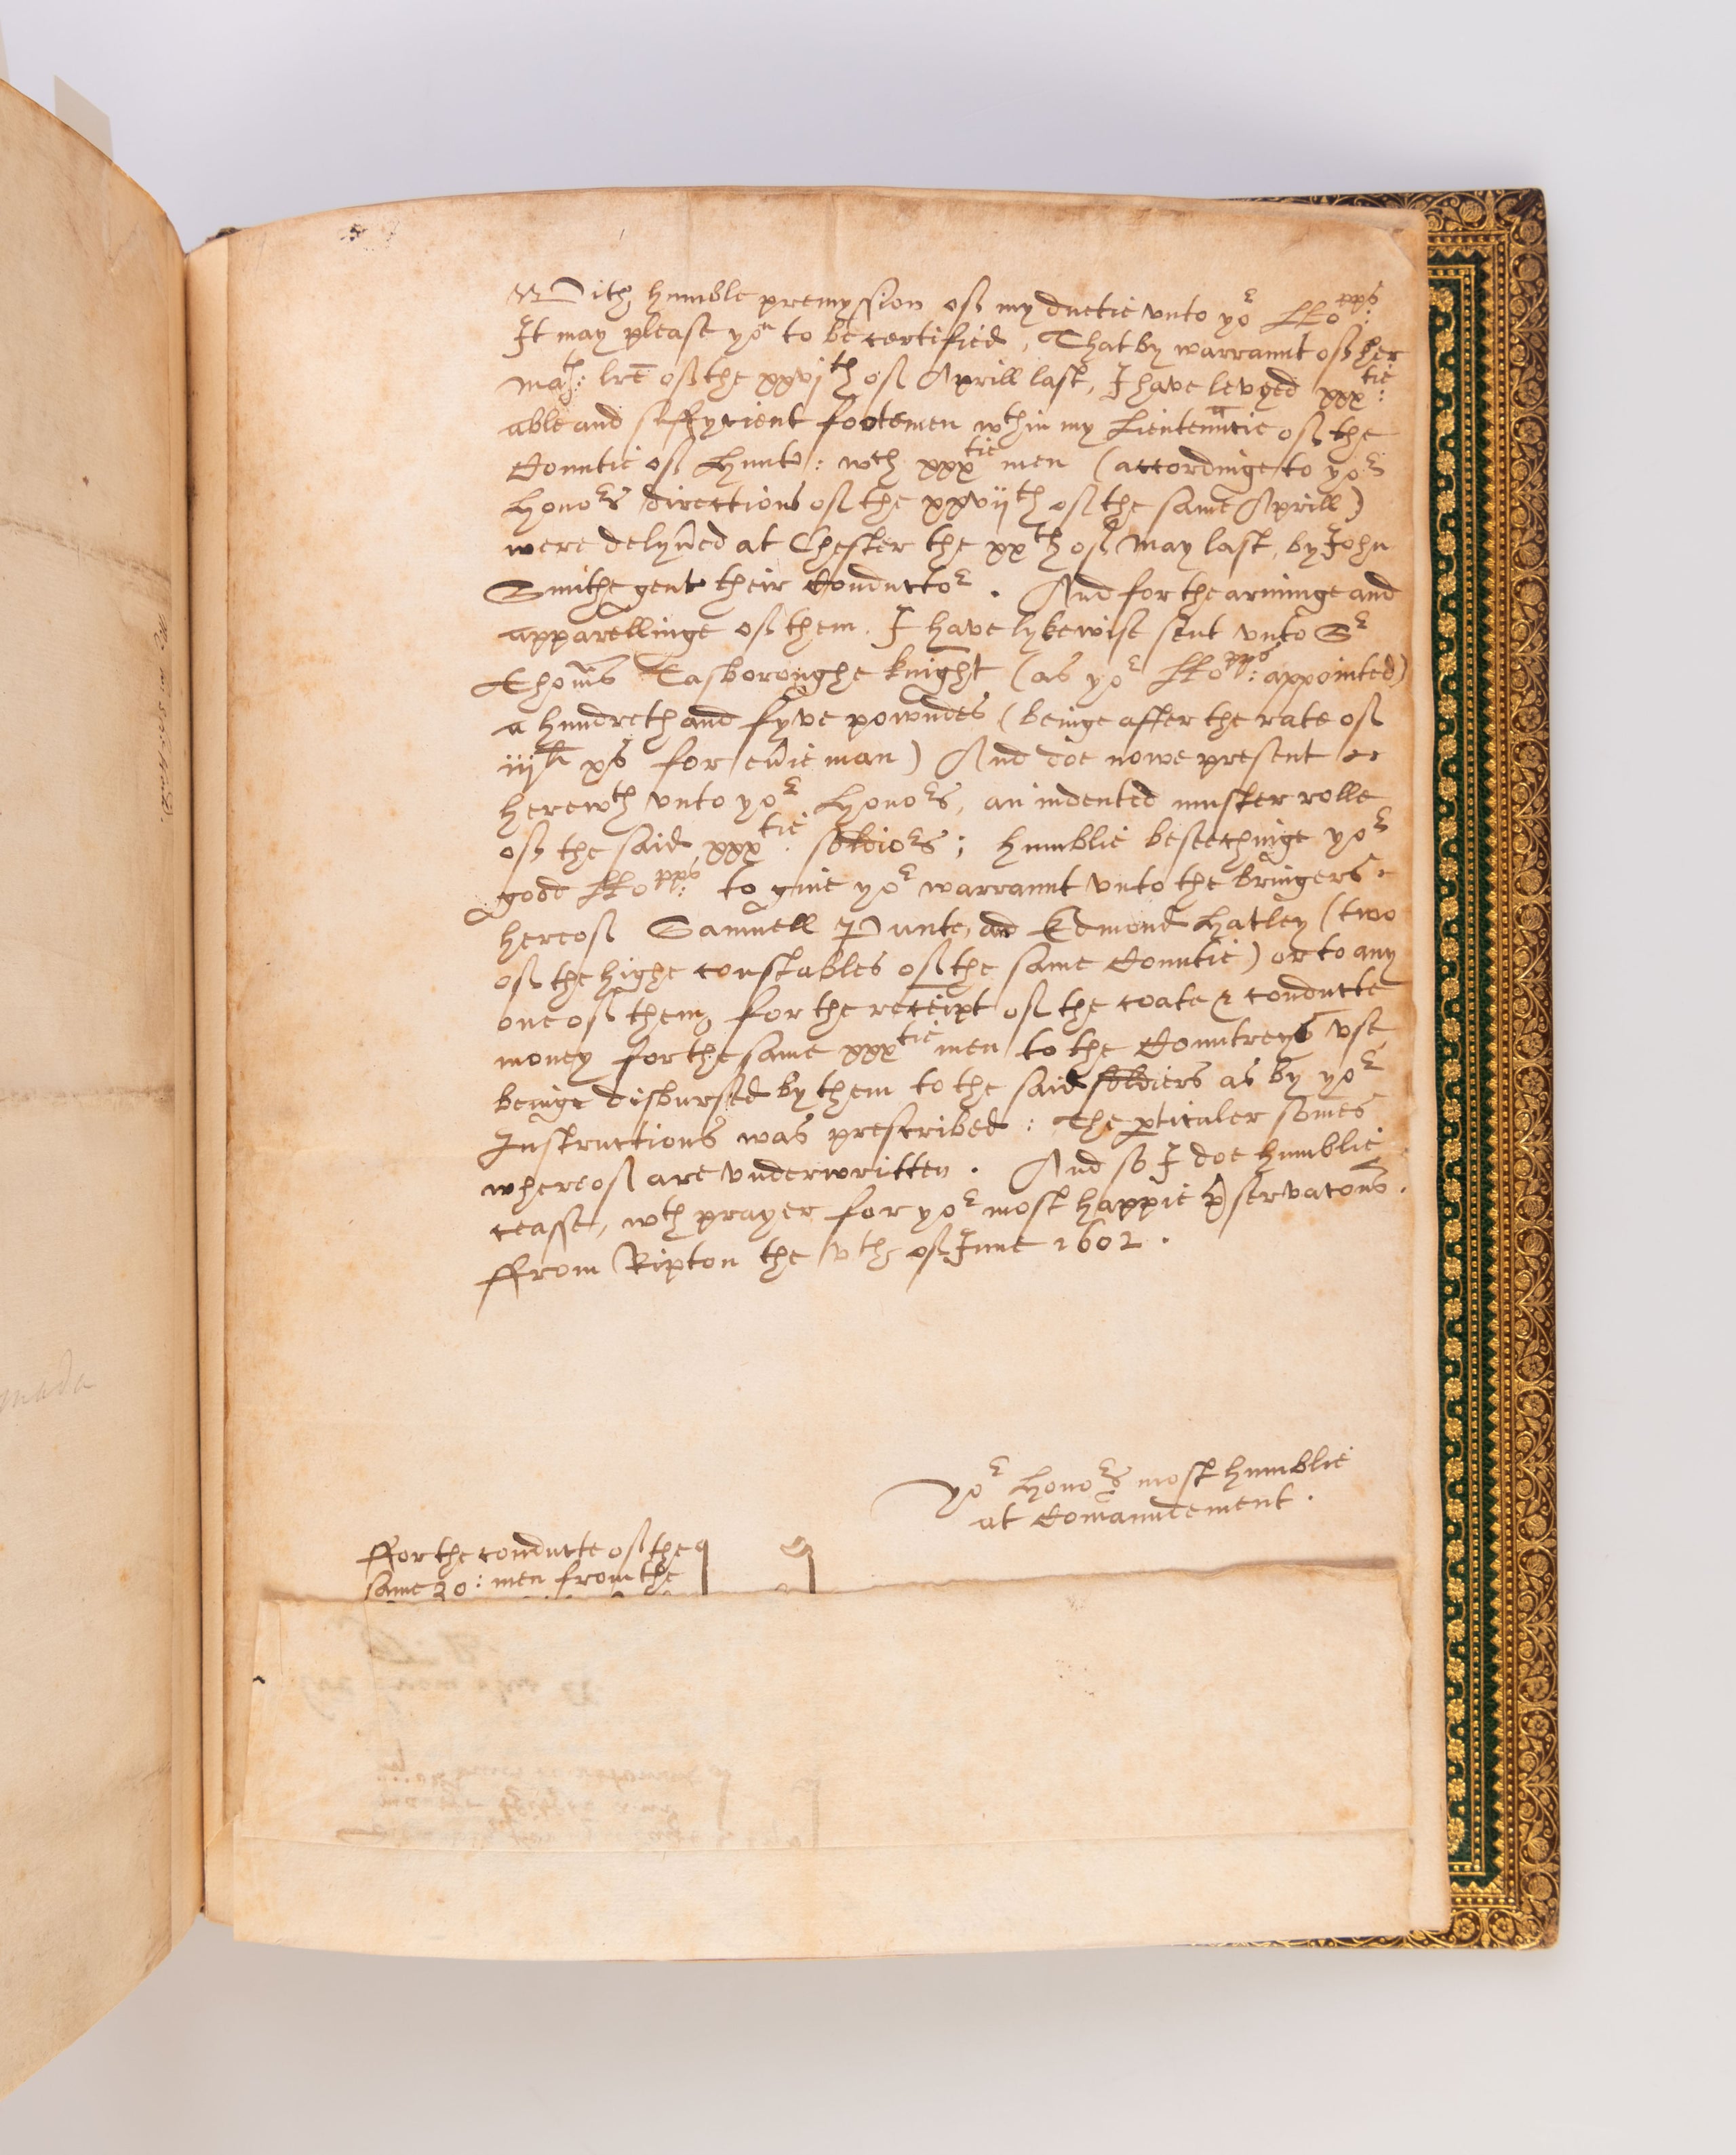 With humble premyssion of my duetie vnto yor LLopps:
It may please you to be certified, That by warrannt of her
Mats: lre of the xxvjth of Aprill last, I have levyed xxxtie:
able and suffycient footemen wthin my Lieutenncie of the
Countie of Hunt: wch xxxtie men (accordinge to yor
Honors directions of the xxvijth of the same Aprill)
were delyued at Chester the xxth of May last, by John
Smithe gent their Conductor. And for the arminge and
apparellinge of them. I have lykewise sent vnto Sr
Thoms Tasboroughe knight (as yor LLopps: appointed)
a hundreth and fyve powndes (beinge after the rate of
iijli xs for euie man) And doe nowe present
herewth vnto yor Honors, an indented muster rolle
of the said xxxtie: soldiors; humblie beseechinge yor
good LLopps: to giue yor warrannt vnto the bringers
hereof Samuell Punte, and Edmond Hatley (two
of the highe constables of the same Countie) or to any
one of them, for the receipt of the coate & conducte
money for the same xxxtie men to the Countreys vse,
beinge disbursed by them to the said soldiers as by yor
Instructions was prescribed: The pticuler somes
whereof are vnderwritten. And so I doe humblie
ceasse, wth prayer for yor most happie pservacons.
ffrom Ripton the vth of June 1602.
yor Honors most humblie
at Comaundement.
ffor the conducte of the
same 30: men from the